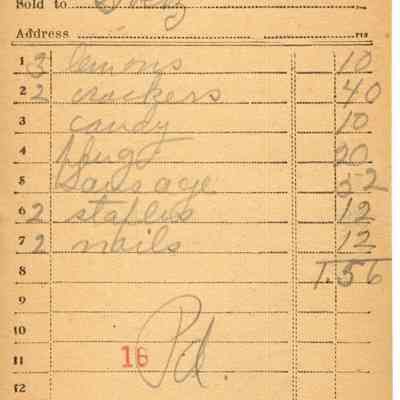 Sold to
Address
1 3 lemons 10
2 2 crackers 40
3 candy 10
4 plug 20
5 sausage 52
6 2 staples 12
7 2 nails 12
8 1.56
9
10
11 16 Pd.
12